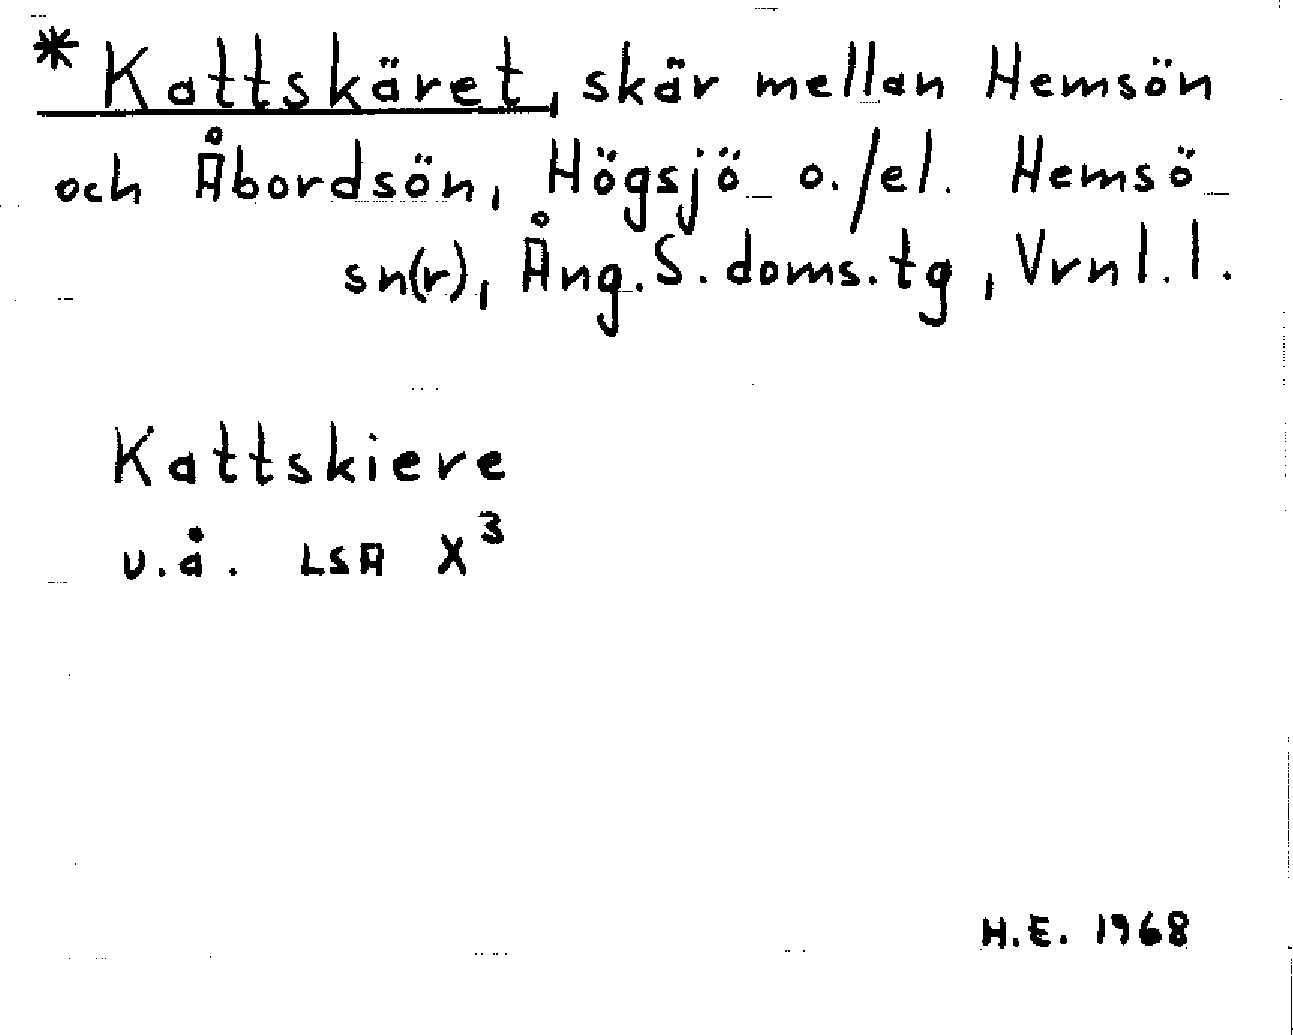 * Kattskäret, skär mellan Hemsön
och Åbordsön, Högsjö o./el. Hemsö
sn(r), Ång.S.doms.tg, Vrnl.l.
Kattskiere
u.å. LSA X³
H.E. 1968